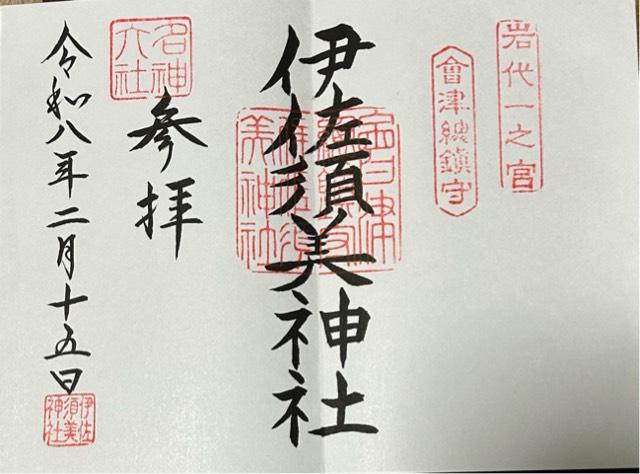 岩代一之宮
會津總鎮守
伊佐須美神社
名神大社
參拝
令和八年二月十五日
伊佐須美神社